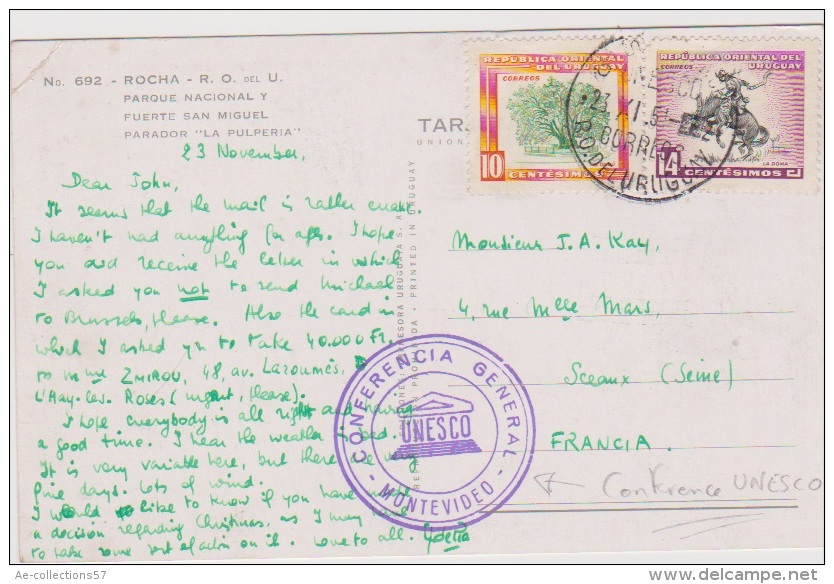 No. 692 - ROCHA - R. O. DEL U.
PARQUE NACIONAL Y
FUERTE SAN MIGUEL
PARADOR "LA PULPERIA"
REPUBLICA ORIENTAL
DEL URUGUAY
CORREOS
10
CENTÉSIMOS
REPUBLICA ORIENTAL DEL
URUGUAY
CORREOS
LA DOMA
14
CENTÉSIMOS
UNESCO
CORREOS
R.O. DEL URUGUAY
TAR
UNION
PRINTED IN URUGUAY
23 November,
Dear John,
It seems that the mail is rather
I haven't had anything for ages. I hope
you did receive the letter in which
I asked you not to send Michael
to Brussels, please. Also the card in
which I asked you to take 40.000 Fr.
to Mme ZMIROU, 48, av. Laroumès,
L'Hay-les-Roses (urgent, please).
I hope everybody is all right and having
a good time. I hear the weather is bad.
It is very variable here, but there are very
fine days. Lots of wind.
I would like to know if you have made
a decision regarding Christmas, as I may have
to take some sort of action on it. Love to all.
Monsieur J. A. Kay,
4, rue Mlle Mars,
Sceaux (Seine)
FRANCIA.
CONFERENCIA GENERAL
UNESCO
- MONTEVIDEO -
Conférence UNESCO
Ae-collections57
delcampe.net